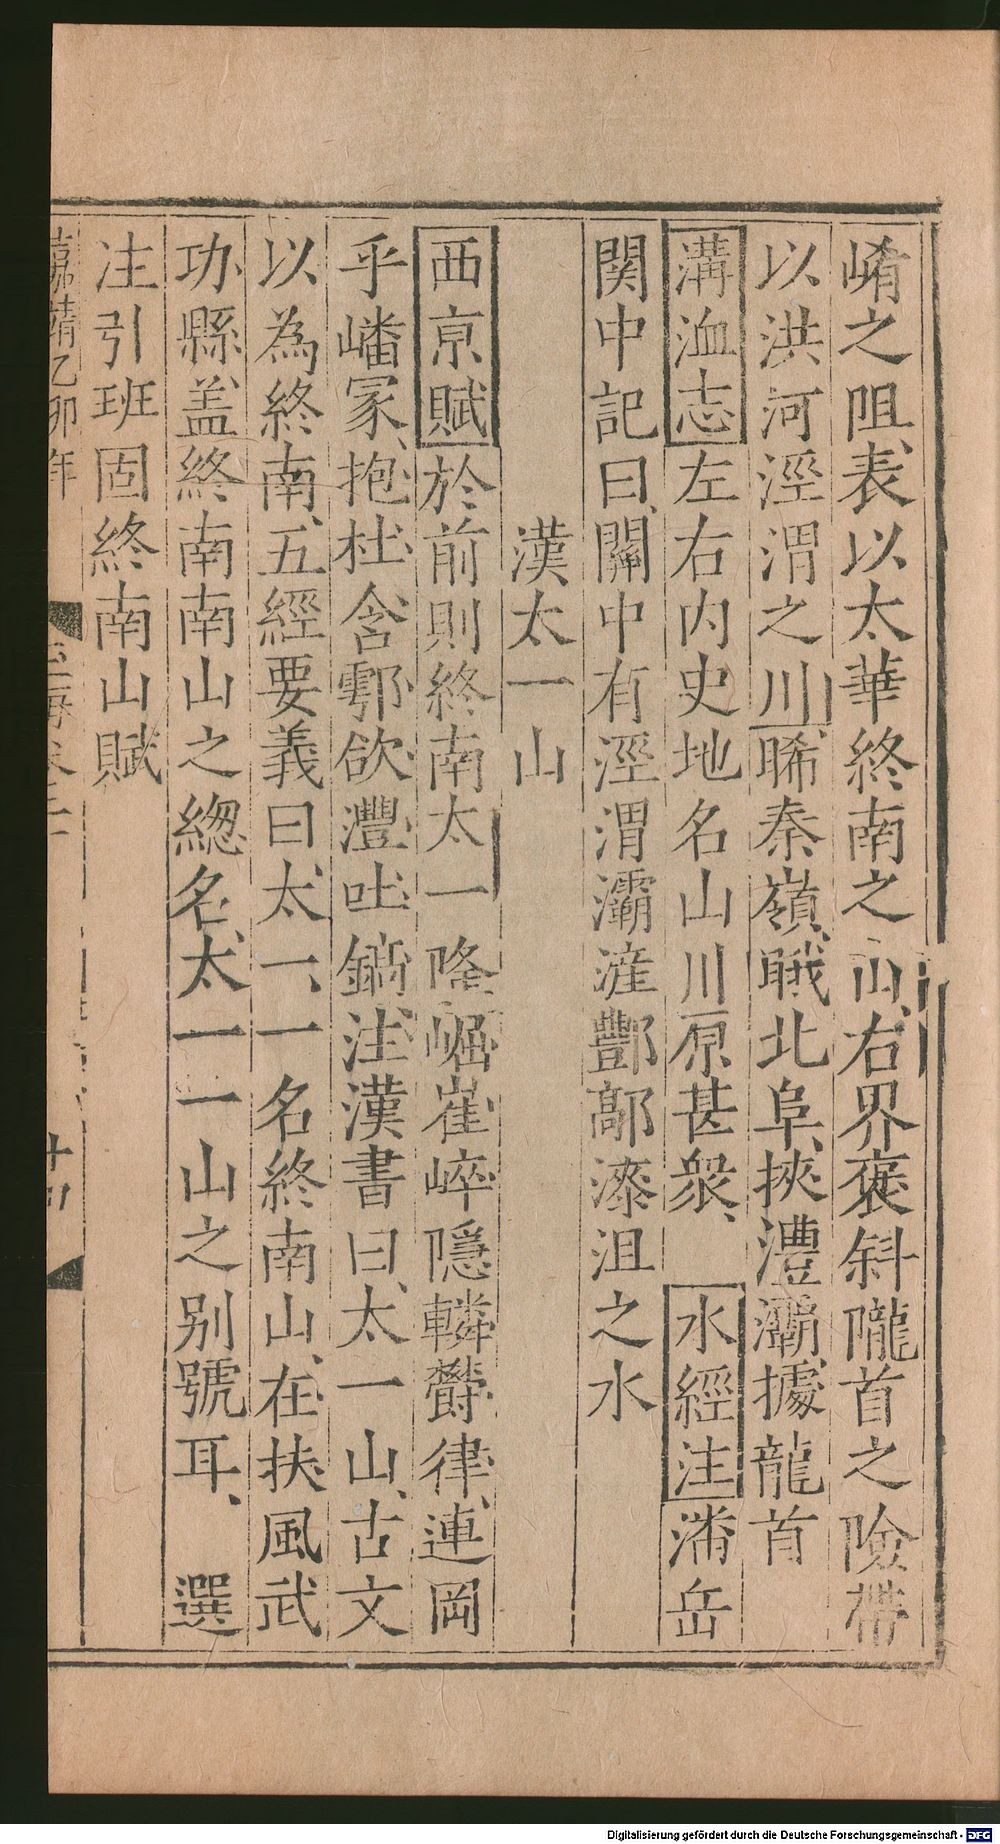 崤之阻表以太華終南之山右界褒斜隴首之險帶
以洪河涇渭之川睎秦嶺睋北阜挾澧灞據龍首
溝洫志左右内史地名山川原甚衆 水經注潘岳
関中記曰關中有涇渭灞滻酆鄗漆沮之水
漢太一山
西京賦於前則終南太一隆崛崔崪隱轔鬱律連岡
乎嶓冢抱杜含鄠欲灃吐鎬注漢書曰太一山古文
以為終南五經要義曰太一一名終南山在扶風武
功縣盖終南南山之緫名太一一山之别號耳 選
注引班固終南山賦
嘉靖乙卯年
Digitalisierung gefördert durch die Deutsche Forschungsgemeinschaft - DFG